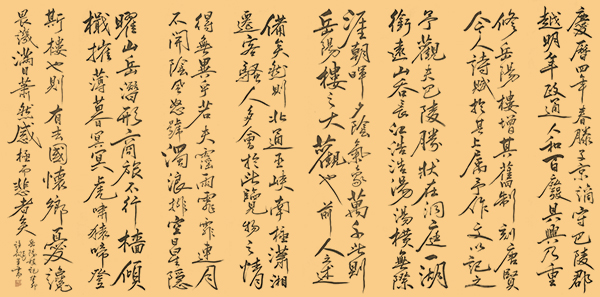 慶曆四年春滕子京謫守巴陵郡
越明年政通人和百廢具興乃重
修岳陽樓增其舊制刻唐賢
今人詩賦於其上屬予作文以記之
予觀夫巴陵勝狀在洞庭一湖
銜遠山吞長江浩浩湯湯橫無際
涯朝暉夕陰氣象萬千此則
岳陽樓之大觀也前人之述
備矣然則北通巫峽南極瀟湘
遷客騷人多會於此覽物之情
得無異乎若夫霪雨霏霏連月
不開陰風怒號濁浪排空日星隱
曜山岳潛形商旅不行檣傾
楫摧薄暮冥冥虎嘯猿啼登
斯樓也則有去國懷鄉憂讒
畏譏滿目蕭然感極而悲者矣
岳陽樓記節